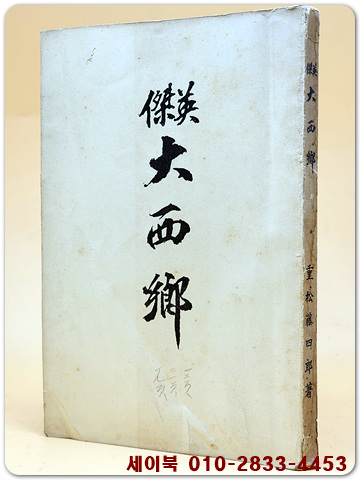 英傑
大西鄉
英傑 大西鄉 重松藤四郎著
세이북 010-2833-4453